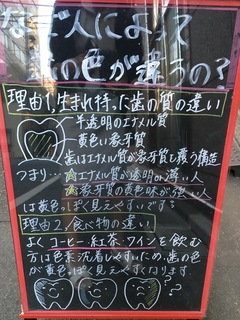 なぜ人によって
歯の色が違うの?
理由1.生まれ持った歯の質の違い
半透明のエナメル質
黄色い象牙質
歯はエナメル質が象牙質を覆う構造
つまり…
エナメル質が透明or薄い人
象牙質の黄色味が強い人
は黄色っぽく見えやすいです!
理由2.食べ物の違い
よくコーヒー、紅茶、ワインを飲む
方は色素沈着しやすいため、歯の色
が黄色っぽく見えやすくなります。
?